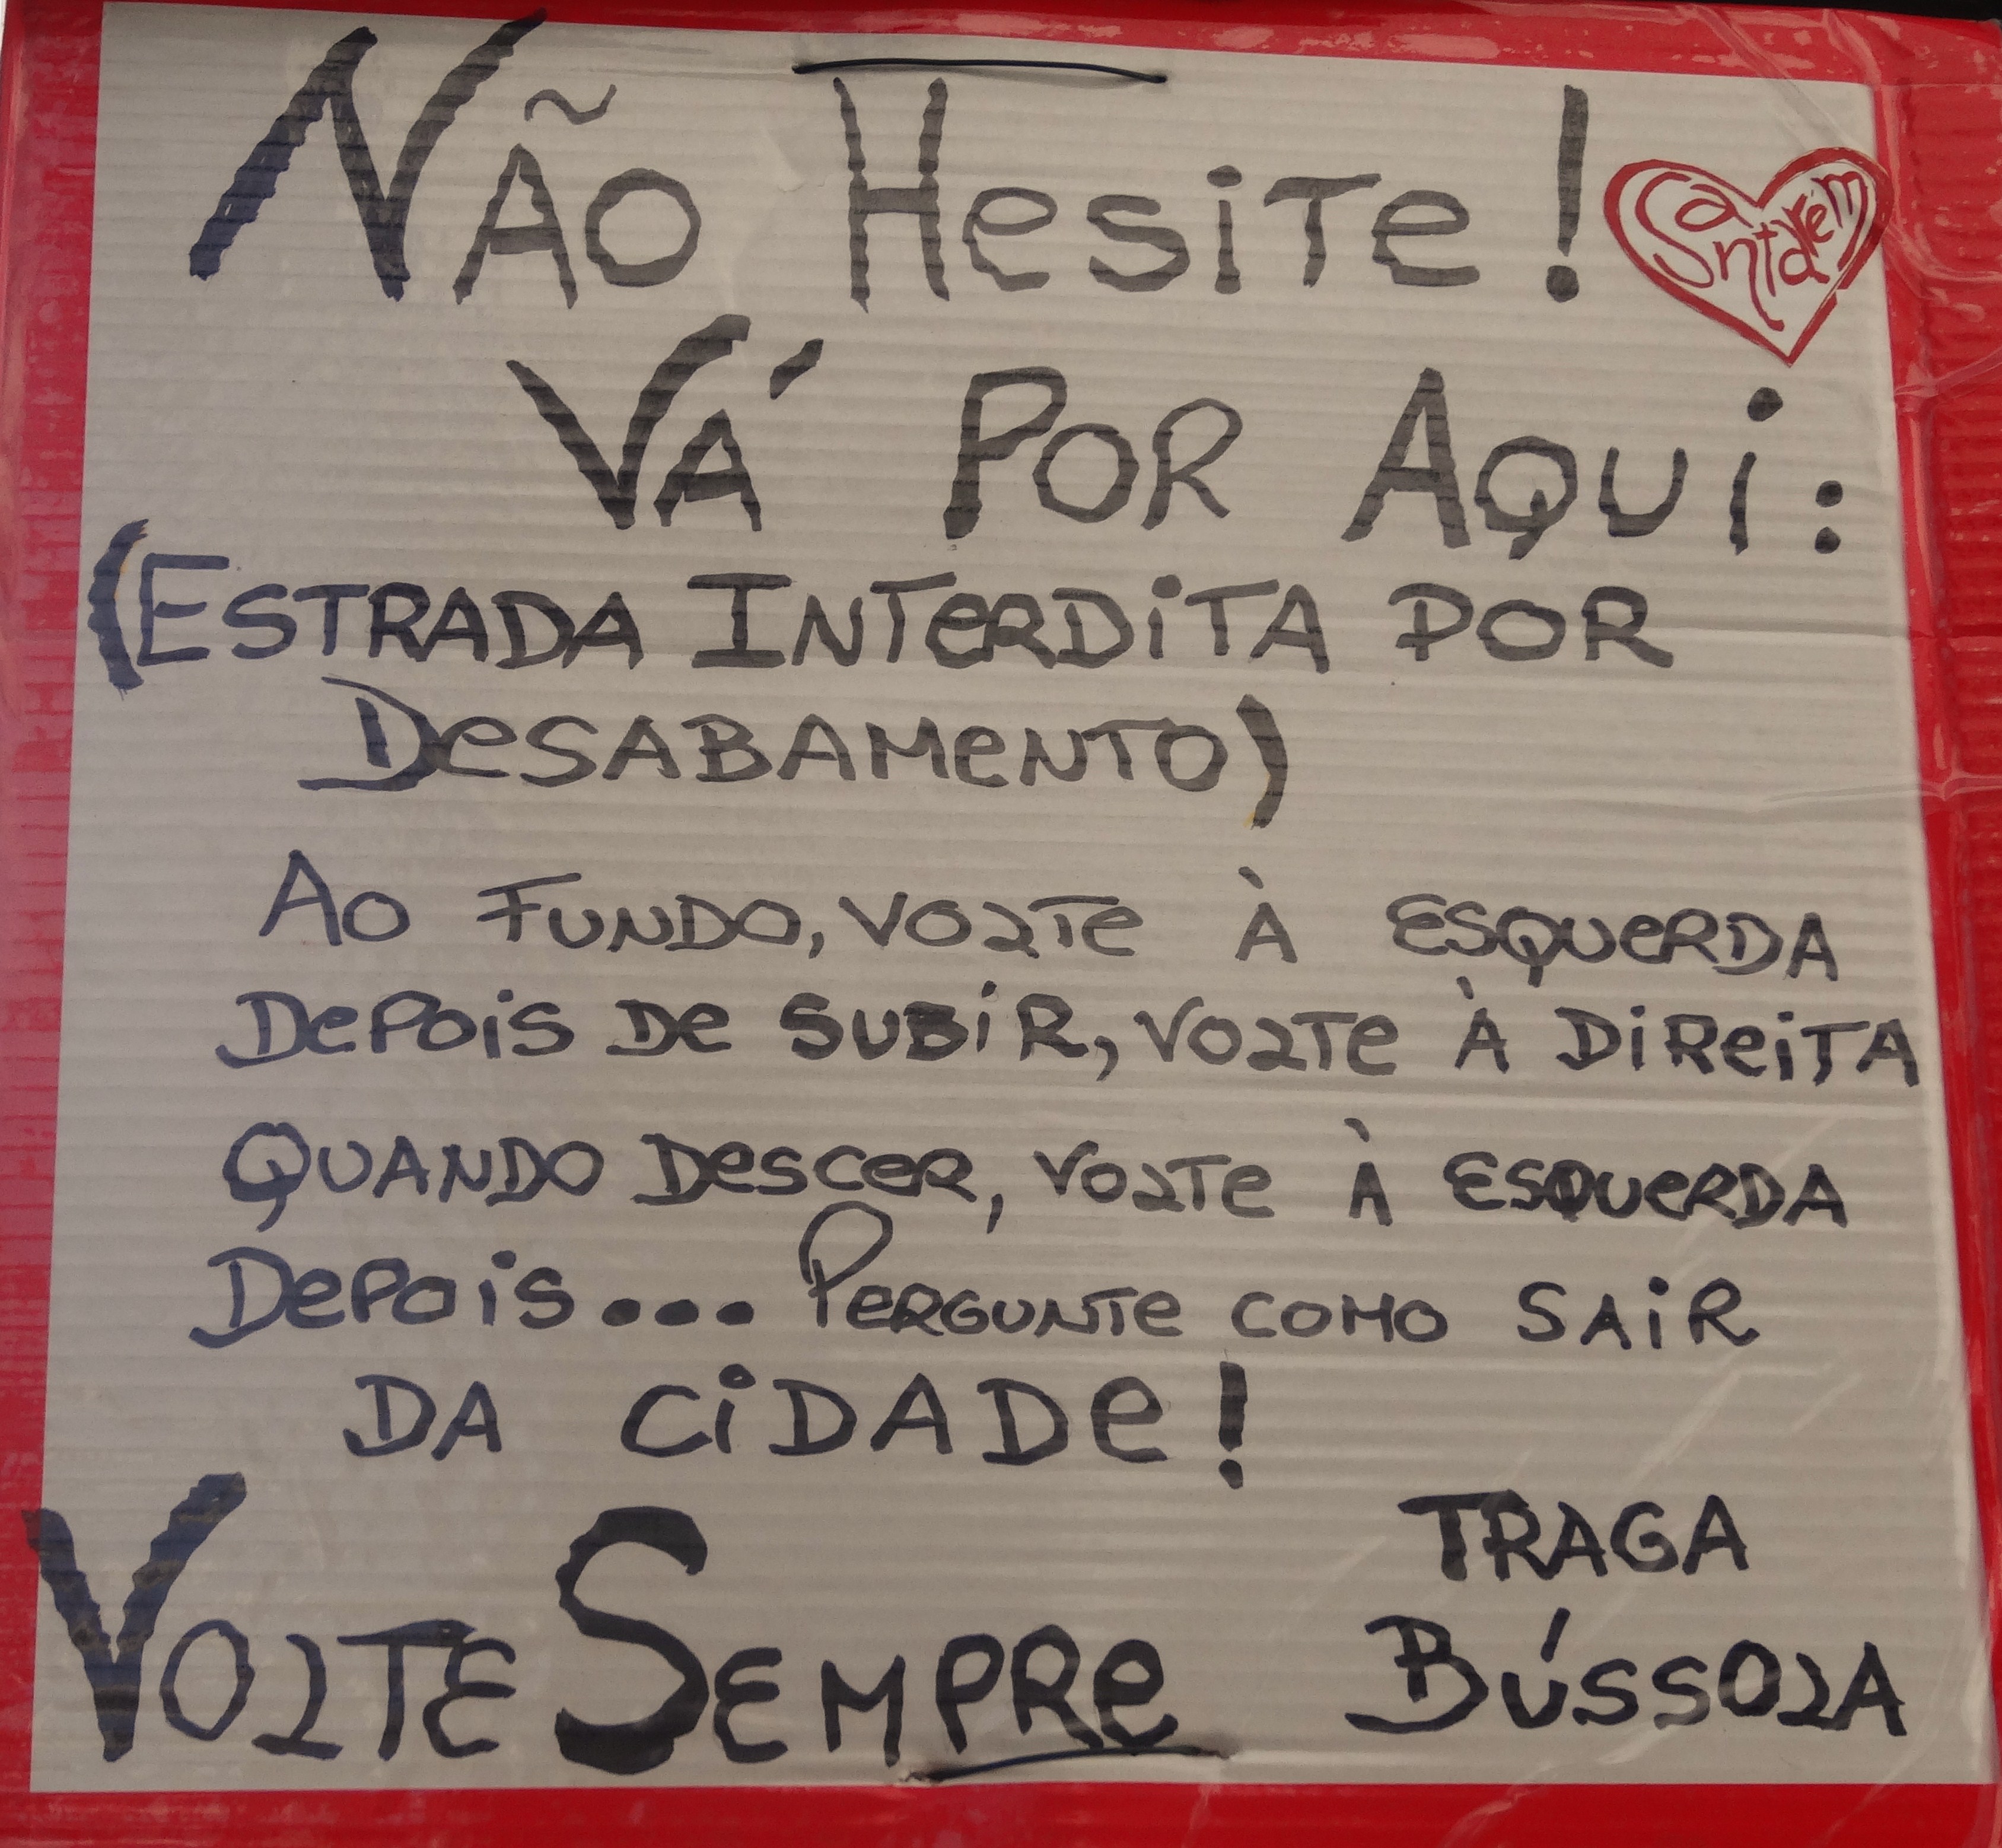 Não Hesite!
Santarém
Vá Por Aqui:
(Estrada Interdita por
Desabamento)
Ao Fundo, volte à esquerda
Depois de subir, volte à direita
Quando descer, volte à esquerda
Depois... Pergunte como sair
da cidade!
Volte Sempre
Traga
Bússola